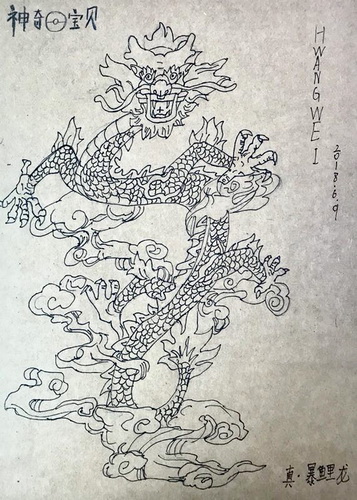 神奇宝贝
HWANGWEI
2018.6.9
真·暴鲤龙